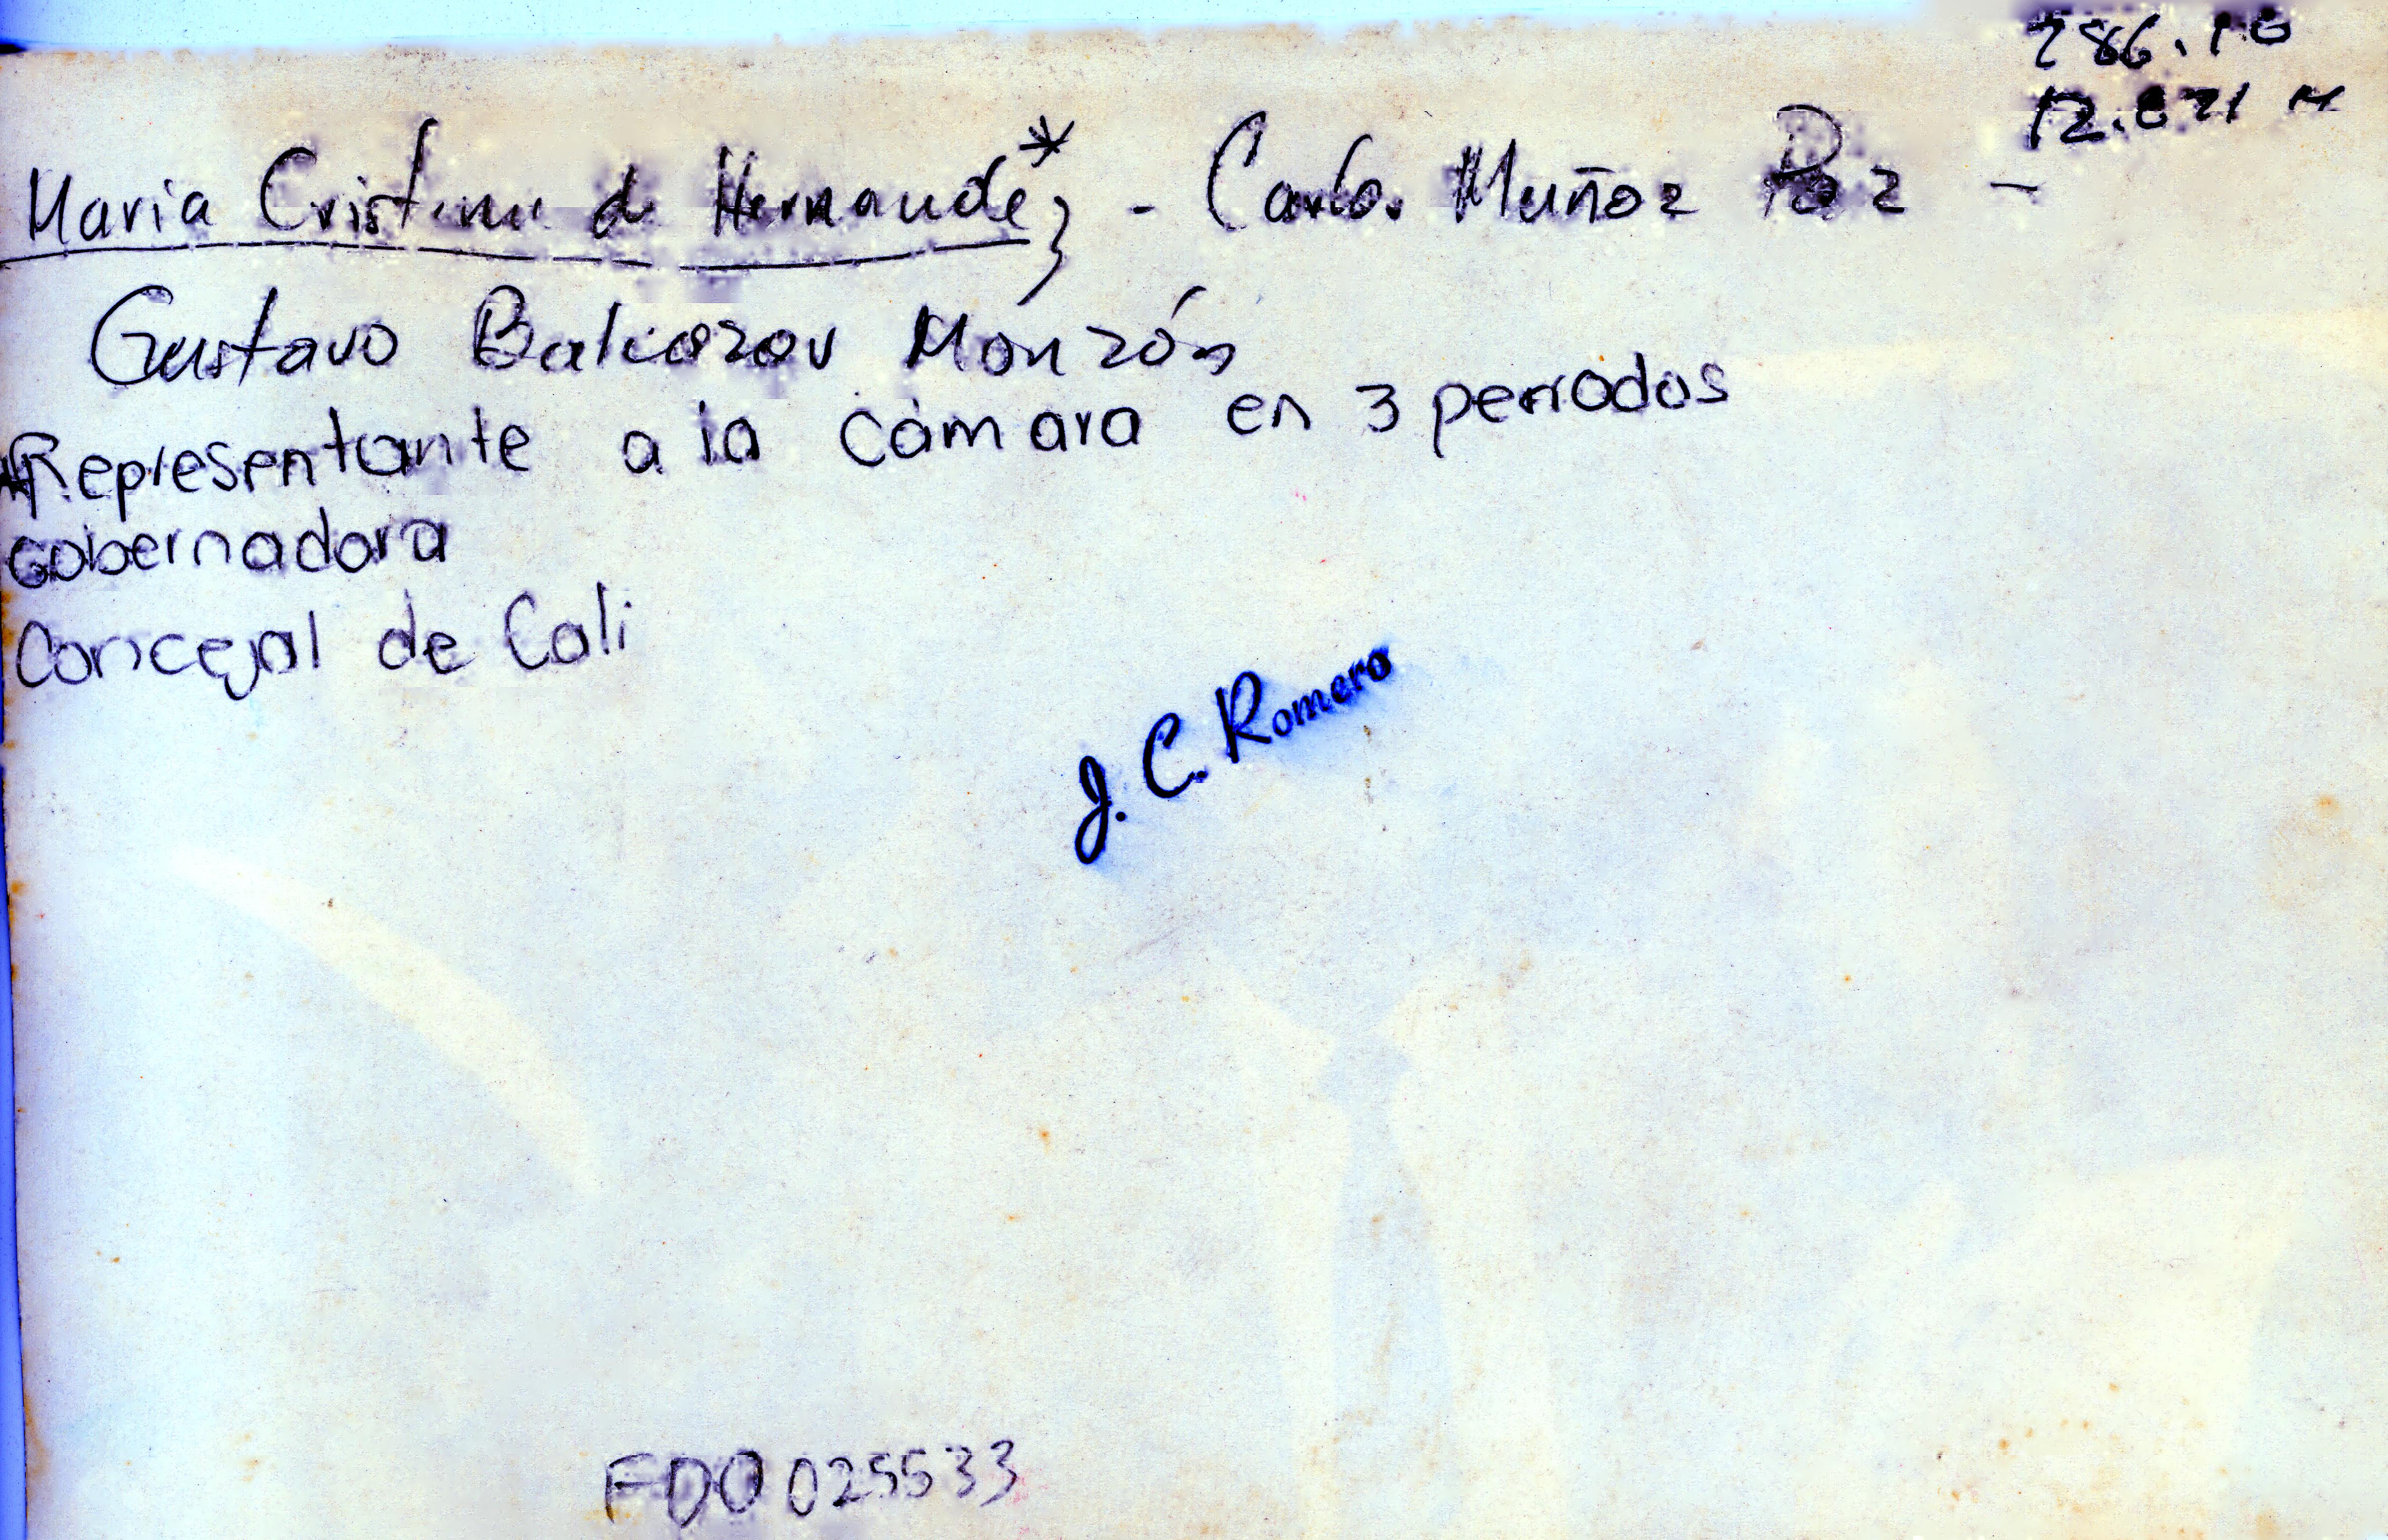 286.
Maria Cristina de Hernandez* - Carlos Muñoz Paz -
Gustavo Balcazar Monzón
Representante a la cámara en 3 periodos
Gobernadora
Concejal de Cali
J. C. Romero
FDO 025533